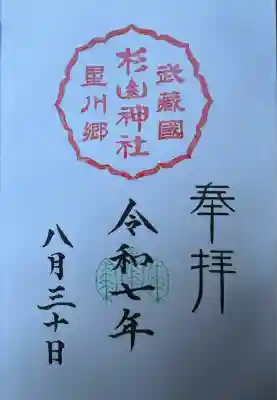 武蔵國
杉山神社
星川郷
奉拝
令和七年
八月三十日